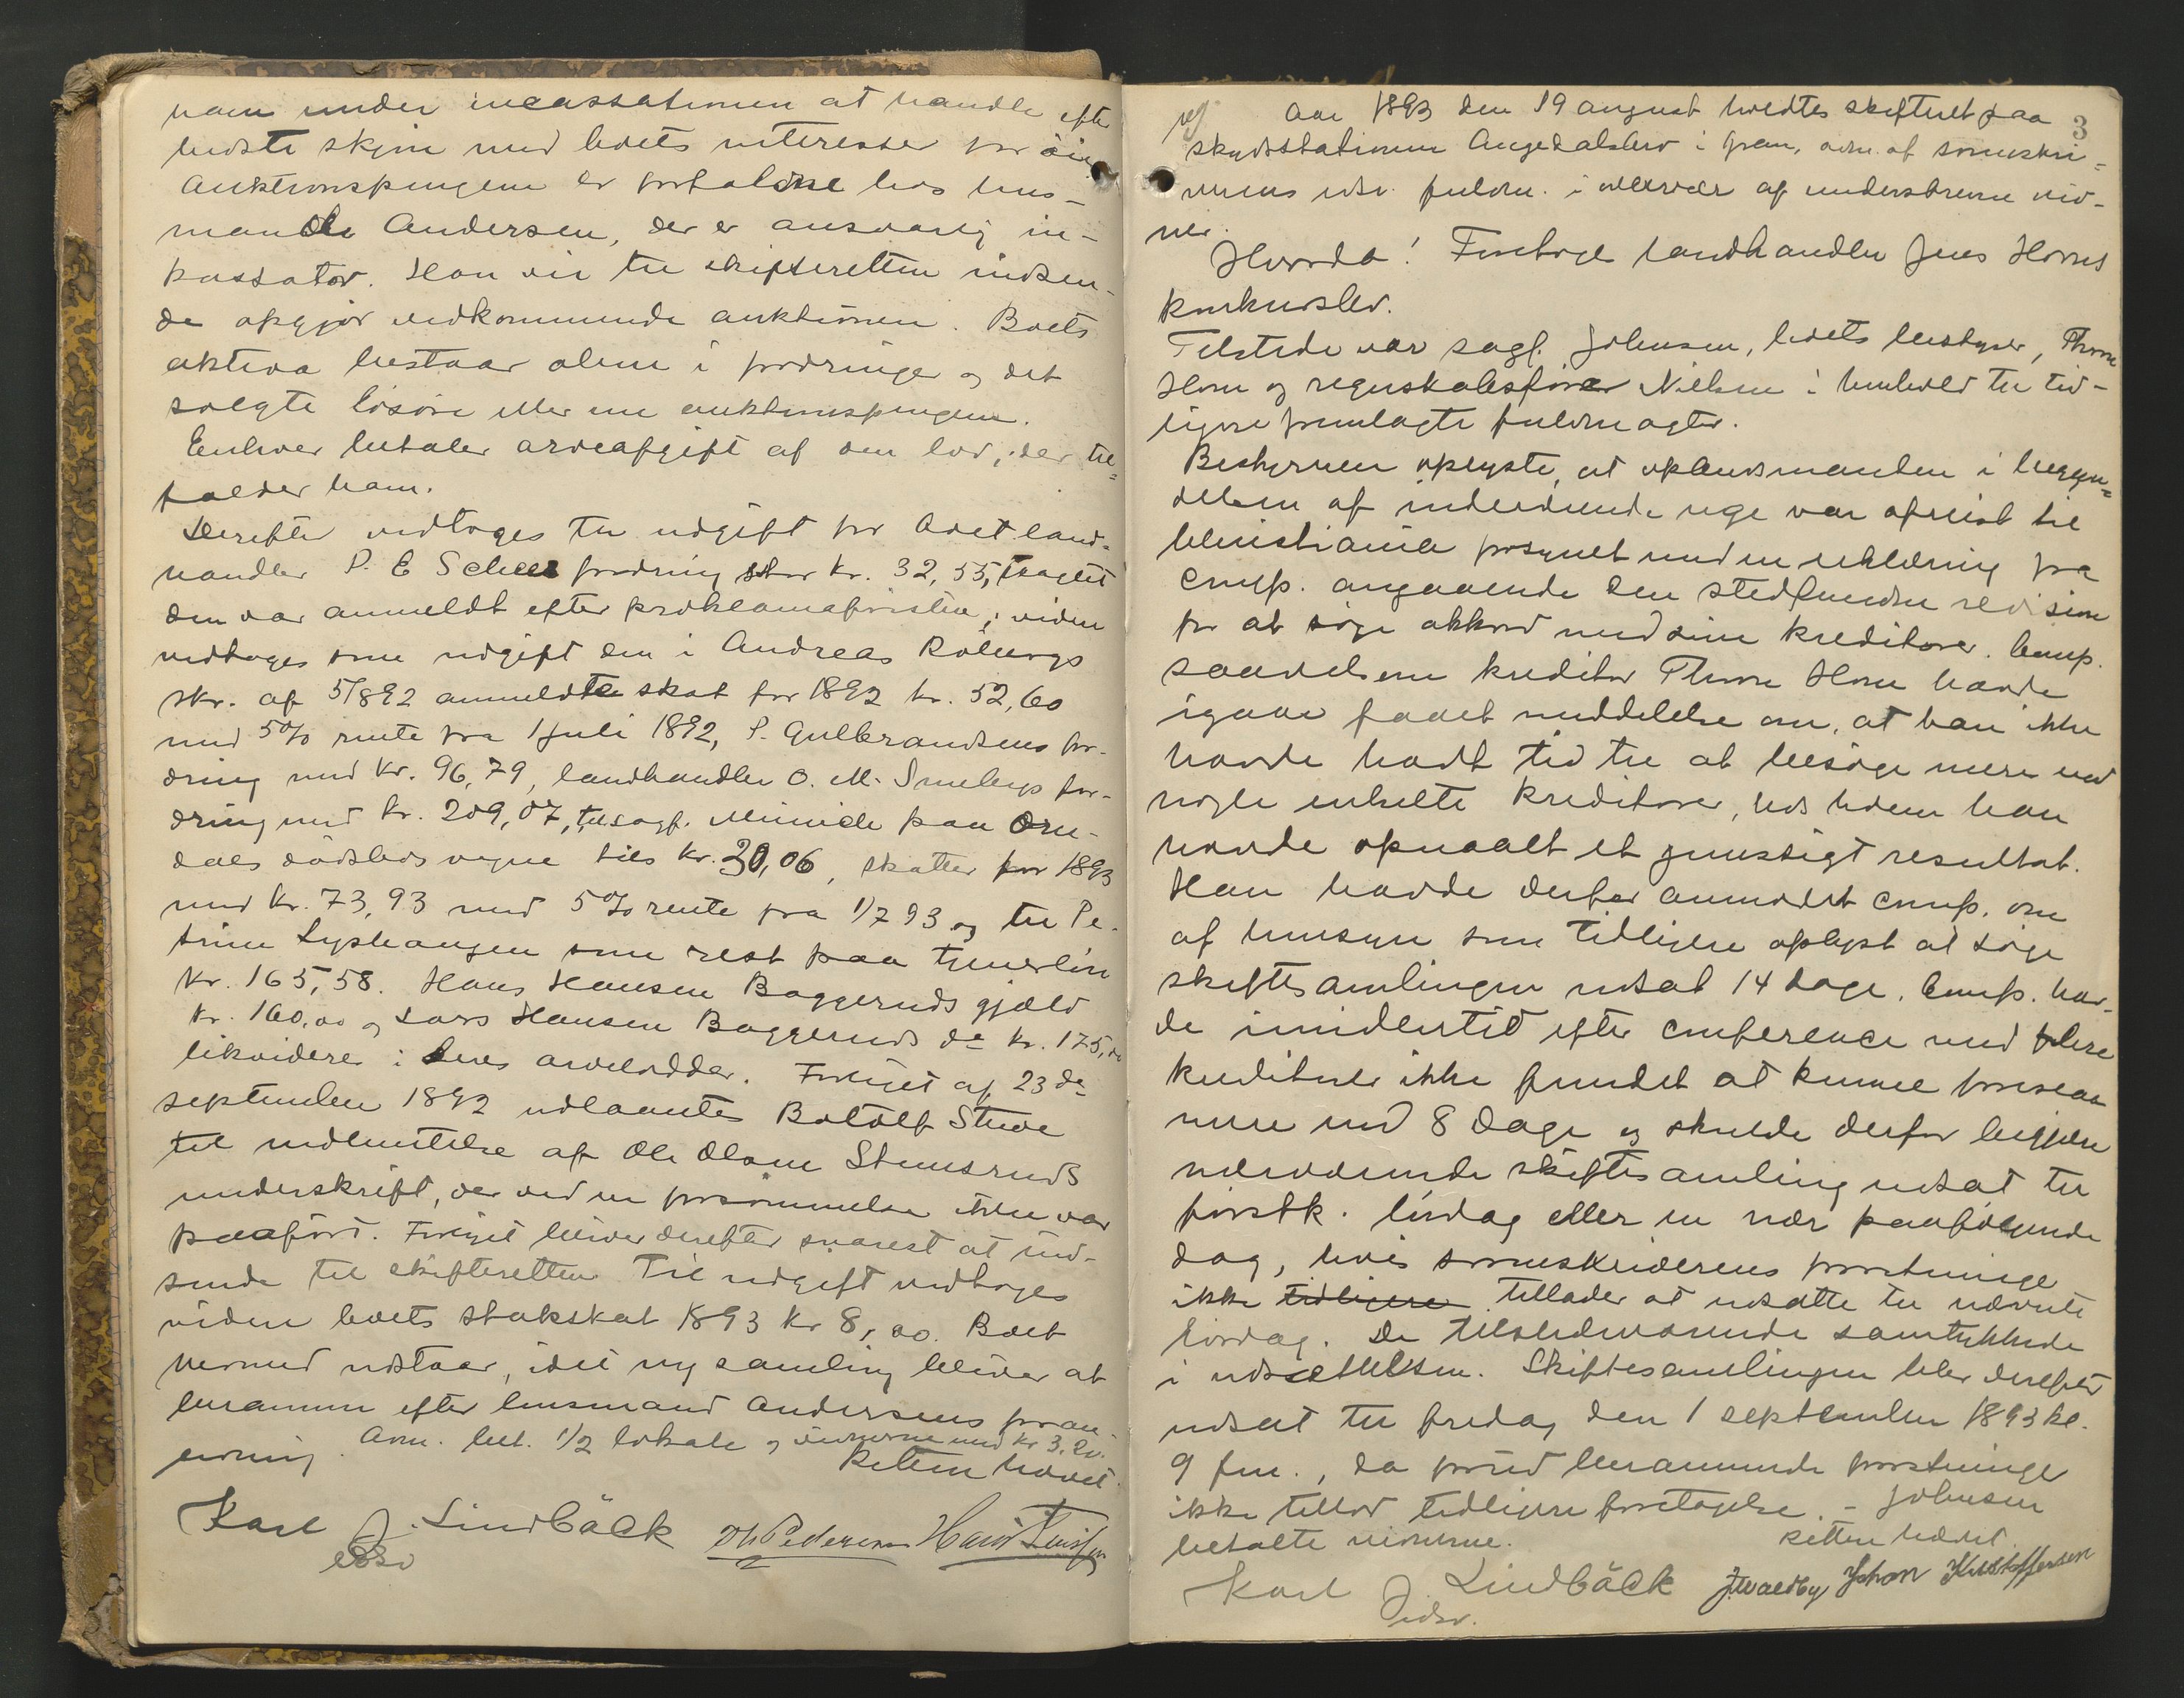 ham under incassationen at handle efter
bedste skjøn med boets interesse for øie
Auktionspengene er forfaldne hos lens-
mand Andersen, der er ansvarlig in-
kassator. Han vil til skifteretten indsen-
de opgjør vedkommende auktionen. Boets
aktiva bestaar alene i fordringer og det
solgte løsøre eller nu auktionspengene.
Enhver betaler arveafgift af den lod, der til-
falder ham.
Derefter vedtoges til udgift for boet land-
handler P. E fordring stor kr. 32,55,
den var anmeldt efter proklamafristen, viden
vedtoges som udgift den i Andreas Røbergs
skr. af 5/8 92 anmeldte skat for 1892 kr. 52,60
med 5% rente fra 1 juli 1892, P. Gulbrandsens for-
dring med kr. 96,79, landhandler O. M. Smebys for-
dring med kr. 209,07, til sagf. paa
dals dødsbos vegne kr. 30,06, skatter for 1893
med kr. 73,93 med 5% rente fra 1/7 93 og til Pe-
trine som rest paa tjenerløn
kr. 165,58. Hans Hansen Baggeruds gjæld
kr. 160,00 og Lars Hansen Baggeruds do kr. 175,00
likvideres i deres arvelodder. Forliget af 23de
september 1892 udlaantes Botolf
til indhentelse af Ole Olsen Stensruds
underskrift, der ved en forsømmelse ikke var
paaført. Forliget bliver derefter snarest at ind-
sende til skifteretten. Til udgift vedtoges
viden boets skat 1893 kr 8,00. Boet
hermed udstaar, idet ny samling bliver at
beramme efter lensmand Andersens foran-
ledning. Adm. bet. 1/2 lokale og vidnerne med kr 3,20.
Retten hævet.
Karl J. Lindbäck Pedersen
edsv
3
Aar 1893 den 19 august holdtes skifteret paa
skydsstationen Augedalsbro i Gran, adm. af sorenskri-
verens edsv. fuldm. i nærvær af underskrevne vid-
ner.
Hvorda! Foretoges landhandler Jens Horns
konkursbo.
Tilstede var sagf. Johnsen, boets bestyrer, Thron
Horn og regnskabsfører Nielsen i henhold til tid-
ligere fremlagte fuldmagter.
Bestyreren oplyste, at opbudsmanden i begyn-
delsen af indeværende uge var afreist til
Christiania forsynet med en erklæring fra
Comp. angaaende den stedfundne revision
for at søge akkord med sine kreditorer. Comp.
saavelsom kreditor Thron Horn havde
igaar faaet meddelelse om, at han ikke
havde havt tid til at besøge mere end
nogle enkelte kreditorer, hos hvem han
havde opnaaet et gunstigt resultat.
Han havde derfor anmodet Comp. om
af hensyn som tidligere oplyst at søge
skiftesamlingen udsat 14 dage. Comp. hav-
de imidlertid efter conference med flere
kreditorer ikke fundet at kunne foreslaa
mere end 8 dage og skulde derfor begjære
nærværende skiftesamling udsat til
førstk. lørdag eller en nær paafølgende
dag, hvis sorenskriverens forretninger
ikke tidligere tillader at udsætte til nævnte
lørdag. De tilstedeværende samtykkede
i udsættelsen. Skiftesamlingen blev derefter
udsat til fredag den 1 september 1893 kl.
9 fm., da forud berammede forretninger
ikke tillod tidligere foretagelse. – Johnsen
betalte vidnerne. Retten hævet.
Karl J. Lindbäck Johan Kristoffersen
edsv.